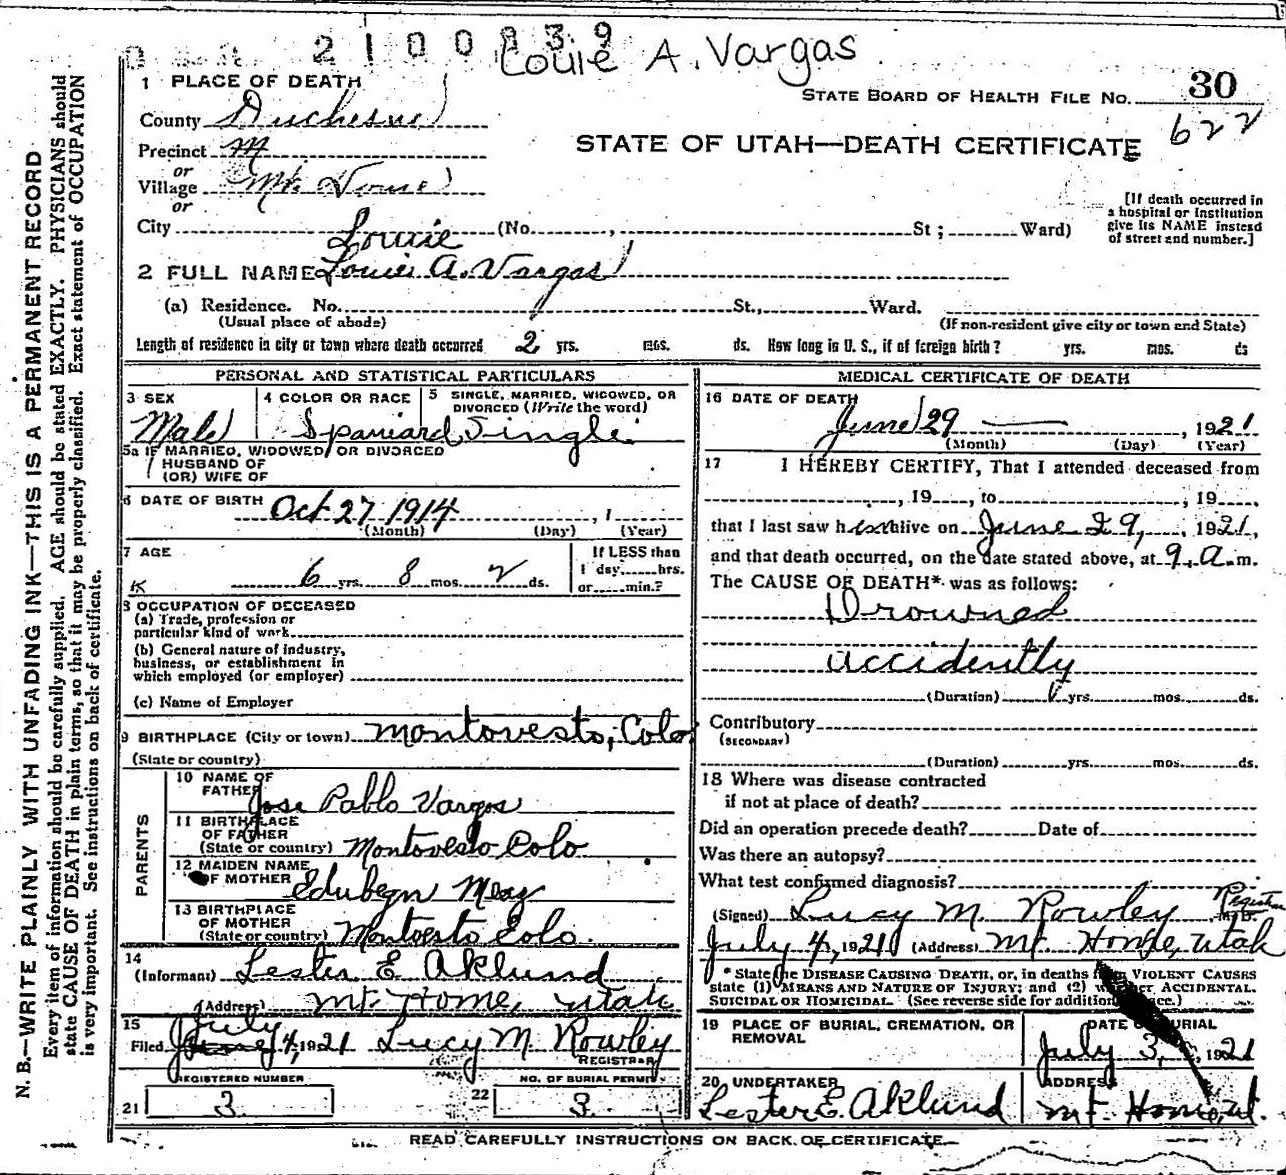 2100839
Louie A. Vargas
1 PLACE OF DEATH
STATE BOARD OF HEALTH FILE NO. 30
County Duchesne
622
STATE OF UTAH—DEATH CERTIFICATE
Precinct M
or
Village Mt. Home
or
City (No. , St ; Ward)
[If death occurred in a hospital or Institution give its NAME instead of street and number.]
Louie
2 FULL NAME Louie A. Vargas
(a) Residence. No. St., Ward.
(Usual place of abode) (If non-resident give city or town and State)
Length of residence in city or town where death occurred 2 yrs. mos. ds. How long in U. S., if of foreign birth? yrs. mos. ds
PERSONAL AND STATISTICAL PARTICULARS
3 SEX 4 COLOR OR RACE 5 SINGLE, MARRIED, WIDOWED, OR
DIVORCED (Write the word)
Male Spaniard Single
5a IF MARRIED, WIDOWED, OR DIVORCED
HUSBAND OF
(OR) WIFE OF
6 DATE OF BIRTH Oct 27 1914 , 1
(Month) (Day) (Year)
7 AGE If LESS than
6 yrs. 8 mos. 2 ds. 1 day, hrs.
or min.?
8 OCCUPATION OF DECEASED
(a) Trade, profession or
particular kind of work
(b) General nature of industry,
business, or establishment in
which employed (or employer)
(c) Name of Employer
9 BIRTHPLACE (City or town) Montovesto, Colo
(State or country)
PARENTS
10 NAME OF
FATHER Jose Pablo Vargas
11 BIRTHPLACE
OF FATHER
(State or country) Montovesto Colo
12 MAIDEN NAME
OF MOTHER
13 BIRTHPLACE
OF MOTHER
(State or country) Montoesto Colo.
14
(Informant) Lester E Aklund
(Address) Mt. Home, Utah
15 July
Filed June 4, 1921 Lucy M. Rowley
REGISTRAR
REGISTERED NUMBER NO. OF BURIAL PERMIT
21 3 22 3
MEDICAL CERTIFICATE OF DEATH
16 DATE OF DEATH
June 29 , 1921
(Month) (Day) (Year)
17 I HEREBY CERTIFY, That I attended deceased from
, 19 , to , 19
that I last saw him alive on June 29, 1921,
and that death occurred, on the date stated above, at 9. a. m.
The CAUSE OF DEATH* was as follows:
Drowned
accidently
(Duration) yrs. mos. ds.
Contributory
(SECONDARY)
(Duration) yrs. mos. ds.
18 Where was disease contracted
if not at place of death?
Did an operation precede death? Date of
Was there an autopsy?
What test confirmed diagnosis?
(Signed) Lucy M. Rowley Registrar M.D.
July 4, 1921 (Address) Mt Home, Utah
* State the DISEASE CAUSING DEATH, or, in deaths from VIOLENT CAUSES
state (1) MEANS AND NATURE OF INJURY; and (2) whether ACCIDENTAL.
SUICIDAL OR HOMICIDAL. (See reverse side for additional space.)
19 PLACE OF BURIAL, CREMATION, OR
REMOVAL
DATE OF BURIAL
July 3, 1921
20 UNDERTAKER ADDRESS
Lester E. Aklund Mt. Home, Ut.
READ CAREFULLY INSTRUCTIONS ON BACK OF CERTIFICATE
N. B.—WRITE PLAINLY WITH UNFADING INK—THIS IS A PERMANENT RECORD
Every item of information should be carefully supplied. AGE should be stated EXACTLY. PHYSICIANS should
state CAUSE OF DEATH in plain terms, so that it may be properly classified. Exact statement of OCCUPATION
is very important. See instructions on back of certificate.